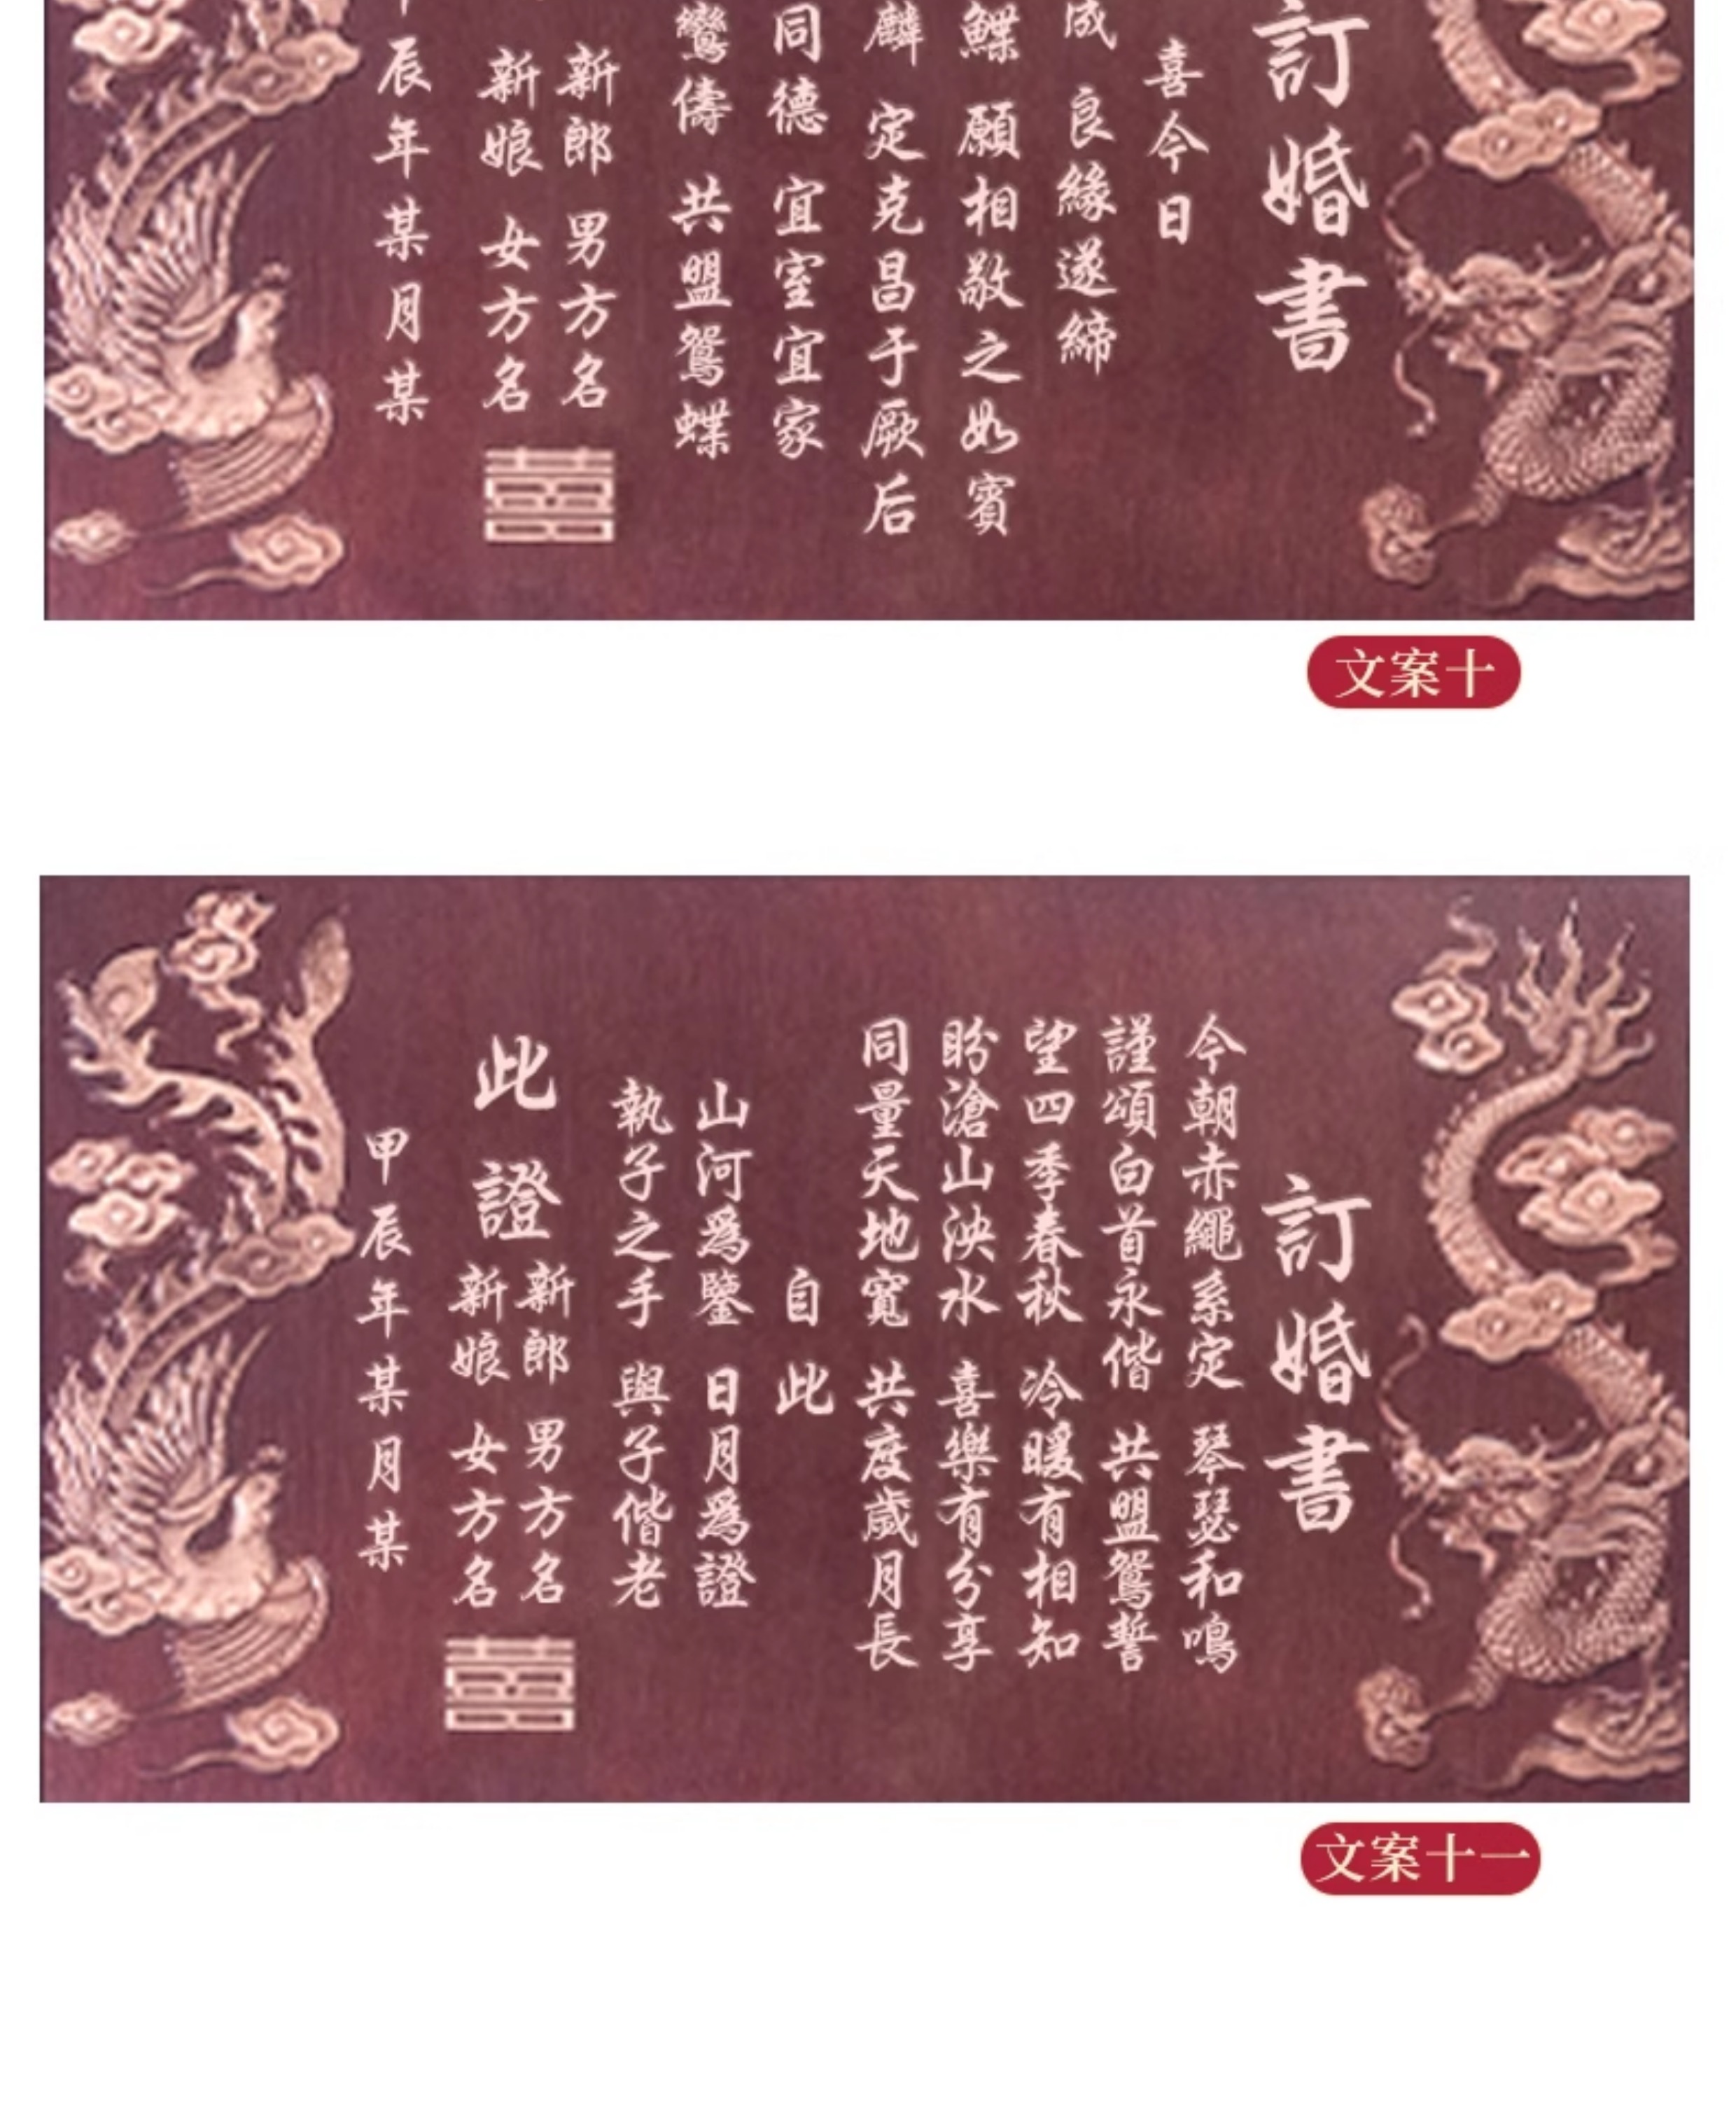 訂婚書
喜今日
良緣遂締
鰈 願相敬之如賓
麟 定克昌于厥后
同德 宜室宜家
鸞儔 共盟鴛蝶
新郎 男方名
新娘 女方名
囍
辰年某月某
文案十
訂婚書
今朝赤繩系定 琴瑟和鳴
謹頌白首永偕 共盟鴛誓
望四季春秋 冷暖有相知
盼滄山泱水 喜樂有分享
同量天地寬 共度歲月長
自此
山河為鑒 日月為證
執子之手 與子偕老
此證
新郎 男方名
新娘 女方名
囍
甲辰年某月某
文案十一